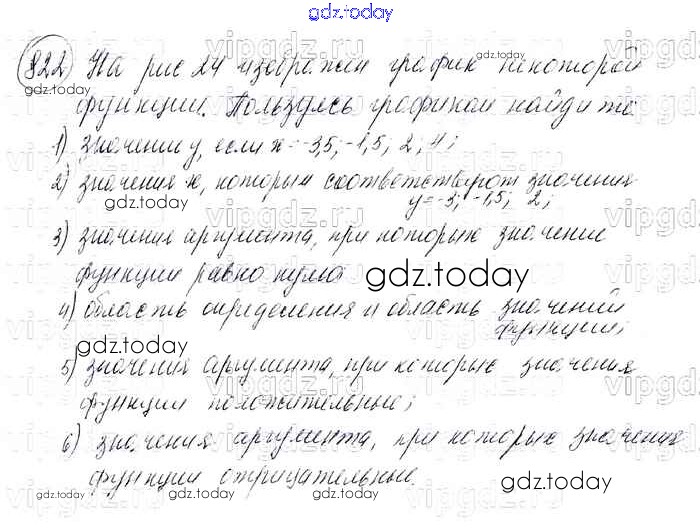 gdz.today
822 На рис 24 изображен график некоторой
gdz.today
функции. Пользуясь графиком найдите
1) значении y, если x = -3,5; -1,5; 2; 4;
2) значения x, которым соответствуют значения
gdz.today
y = -3; -1,5; 2;
3) значения аргумента, при которых значение
функции равно нулю
gdz.today
4) область определения и область значений
функции;
gdz.today
5) значения аргумента, при которых значения
функции положительные;
6) значения аргумента, при которых значения
функции отрицательные.
gdz.today gdz.today gdz.today gdz.today